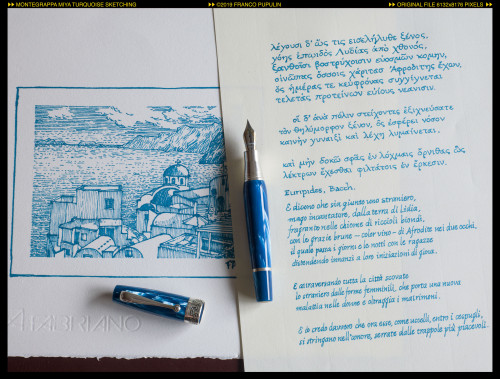 ▸▸ MONTEGRAPPA MIYA TURQUOISE SKETCHING
▸▸ ©2019 FRANCO PUPULIN
▸▸ ORIGINAL FILE 6132x8176 PIXELS ▸▸
λέγουσι δ' ὥς τις εἰσελήλυθε ξένος,
γόης ἐπωιδὸς Λυδίας ἀπὸ χθονός,
ξανθοῖσι βοστρύχοισιν εὐοσμῶν κόμην,
οἰνῶπας ὄσσοις χάριτας Ἀφροδίτης ἔχων,
ὃς ἡμέρας τε κεὐφρόνας συγγίγνεται
τελετὰς προτείνων εὐίους νεάνισιν.
οἳ δ' ἀνὰ πόλιν στείχοντες ἐξιχνεύσατε
τὸν θηλύμορφον ξένον, ὃς ἐσφέρει νόσον
καινὴν γυναιξὶ καὶ λέχη λυμαίνεται.
καὶ μὴν δοκῶ σφᾶς ἐν λόχμαις ὄρνιθας ὣς
λέκτρων ἔχεσθαι φιλτάτοις ἐν ἕρκεσιν.
Euripides, Bacch.
E dicono che sia giunto uno straniero,
mago incantatore, dalla terra di Lidia,
fragrante nelle chiome di riccioli biondi,
con le grazie brune – color vino – di Afrodite nei due occhi,
il quale passa i giorni e le notti con le ragazze
distendendo innanzi a loro iniziazioni di gioia.
E attraversando tutta la città scovate
lo straniero dalle forme femminili, che porta una nuova
malattia nelle donne e oltraggia i matrimoni.
E io credo davvero che ora esse, come uccelli, entro i cespugli,
si stringano nell'amore, serrate dalle trappole più piacevoli.
FABRIANO